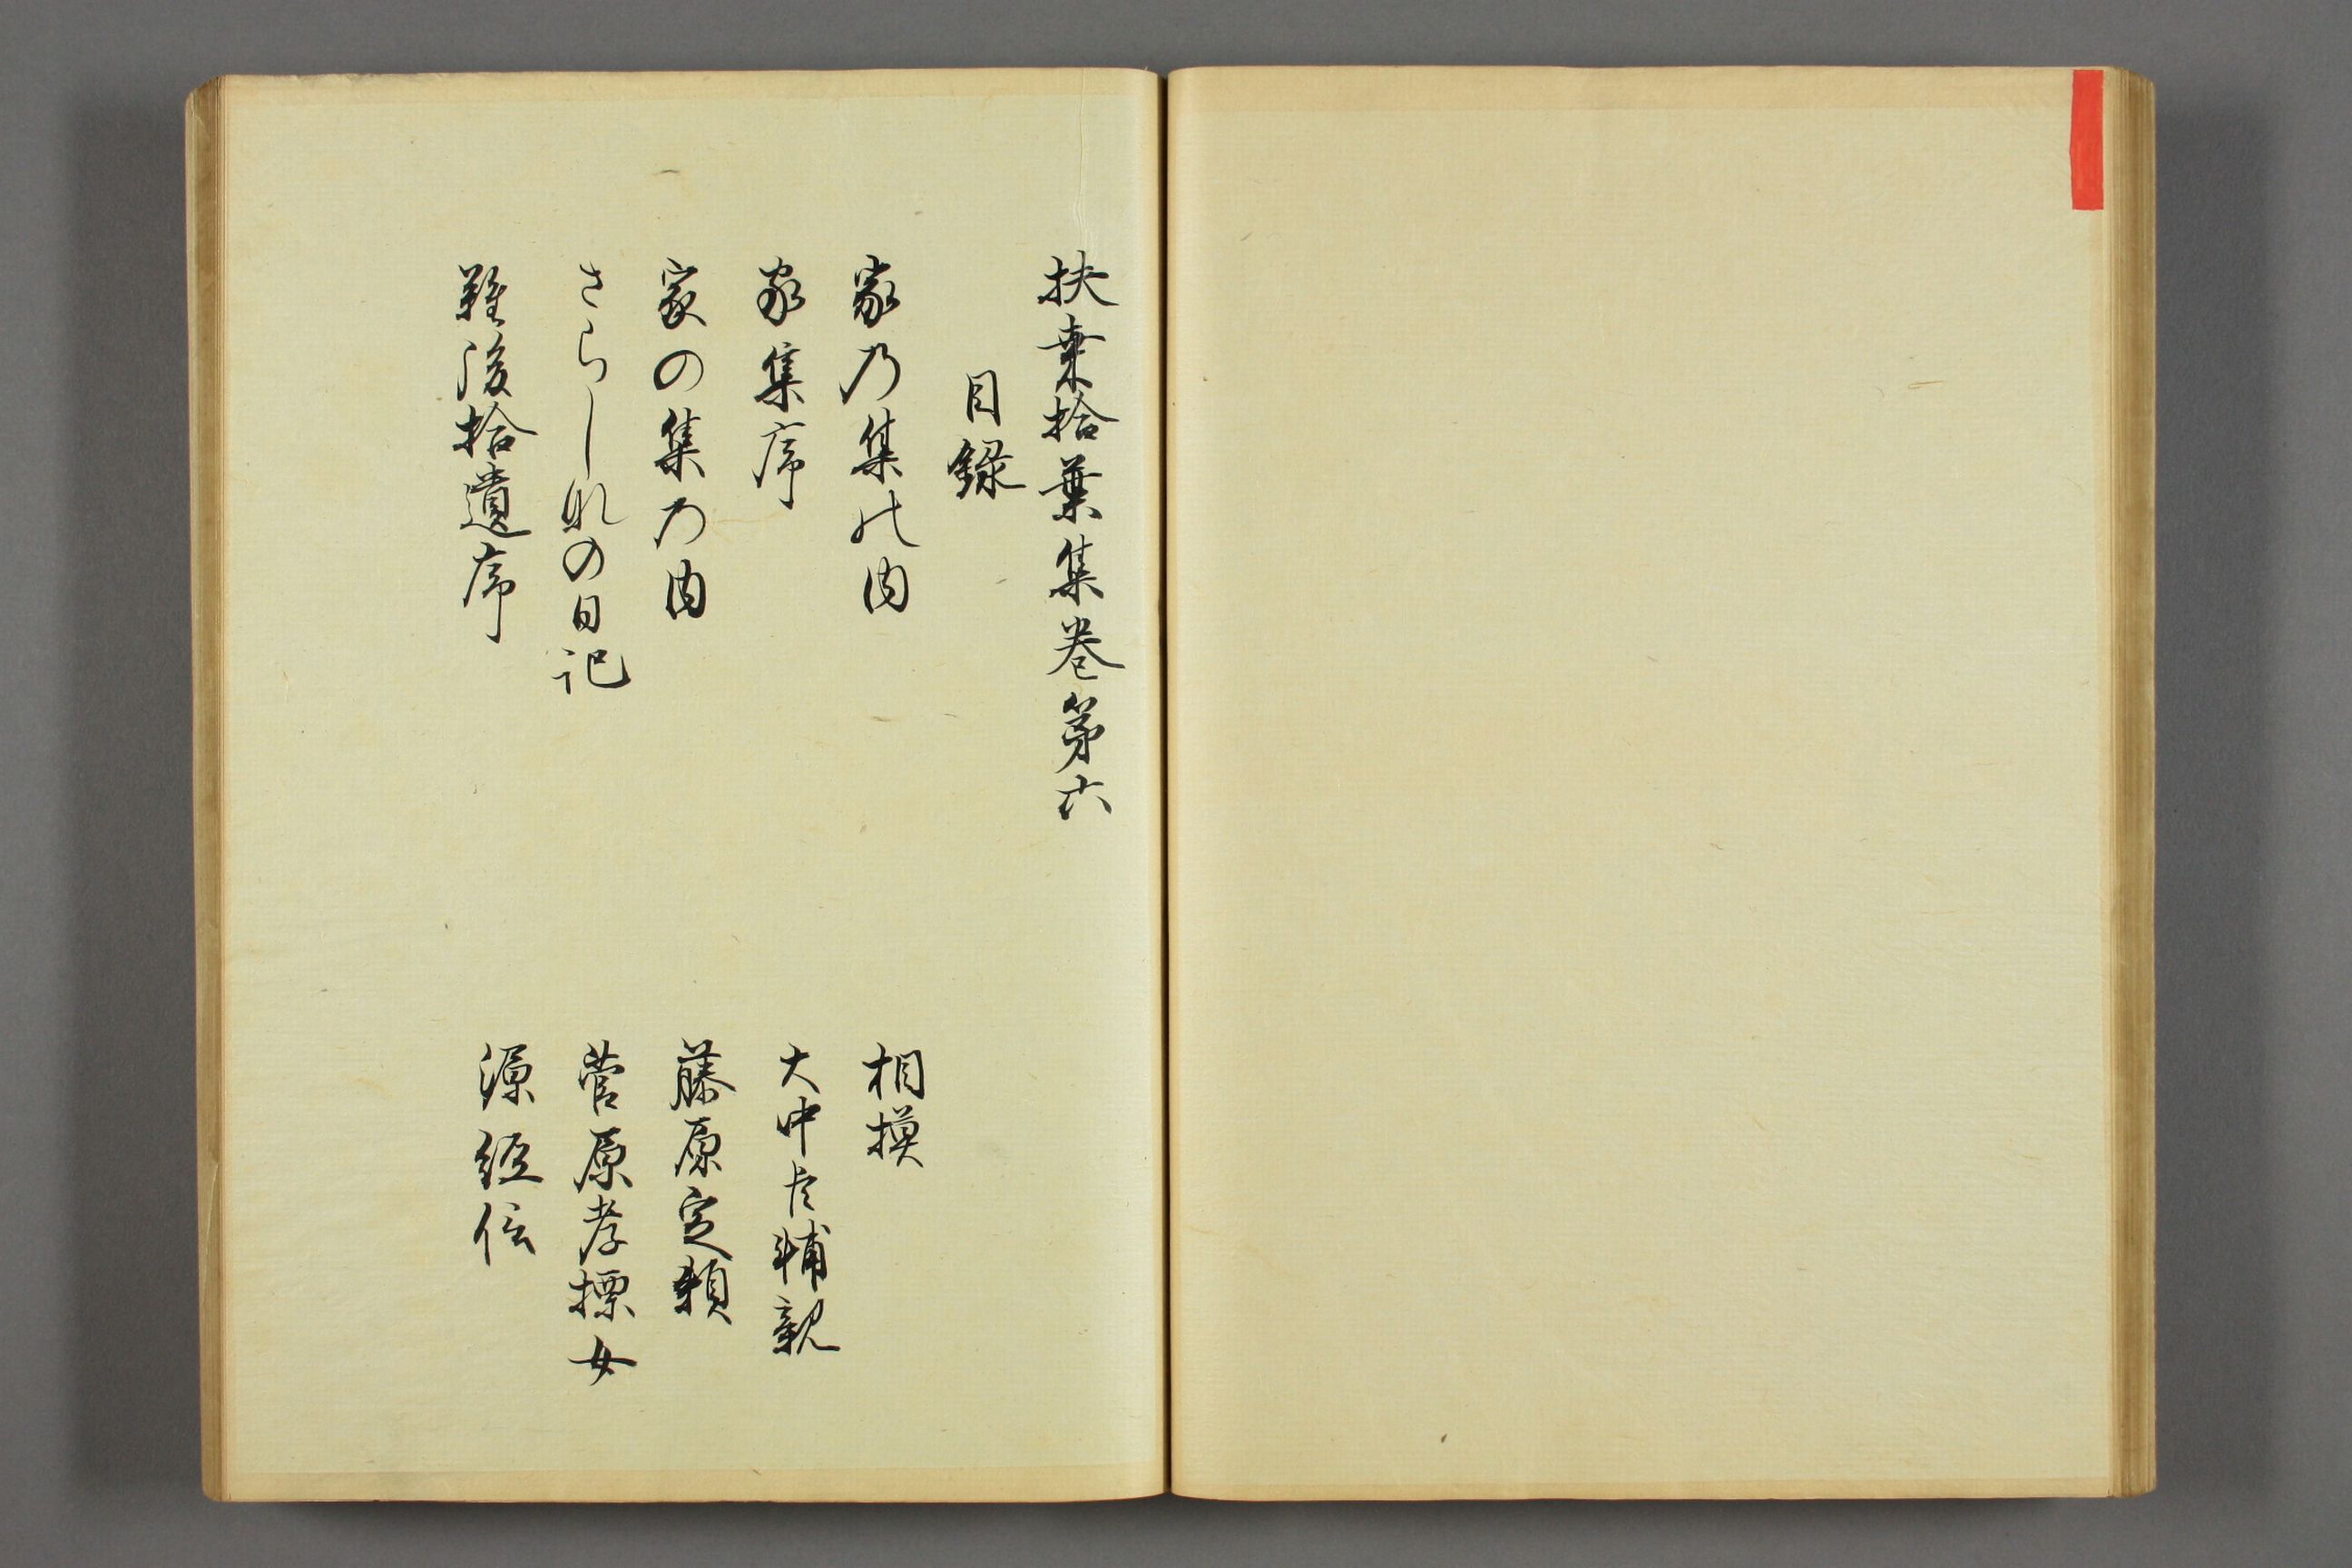 扶桒拾葉集巻第六
目録
家乃集の内 相摸
家集序 大中臣輔親
家の集乃内 藤原定頼
さらしなの日記 菅原孝標女
難後拾遺序 源経信